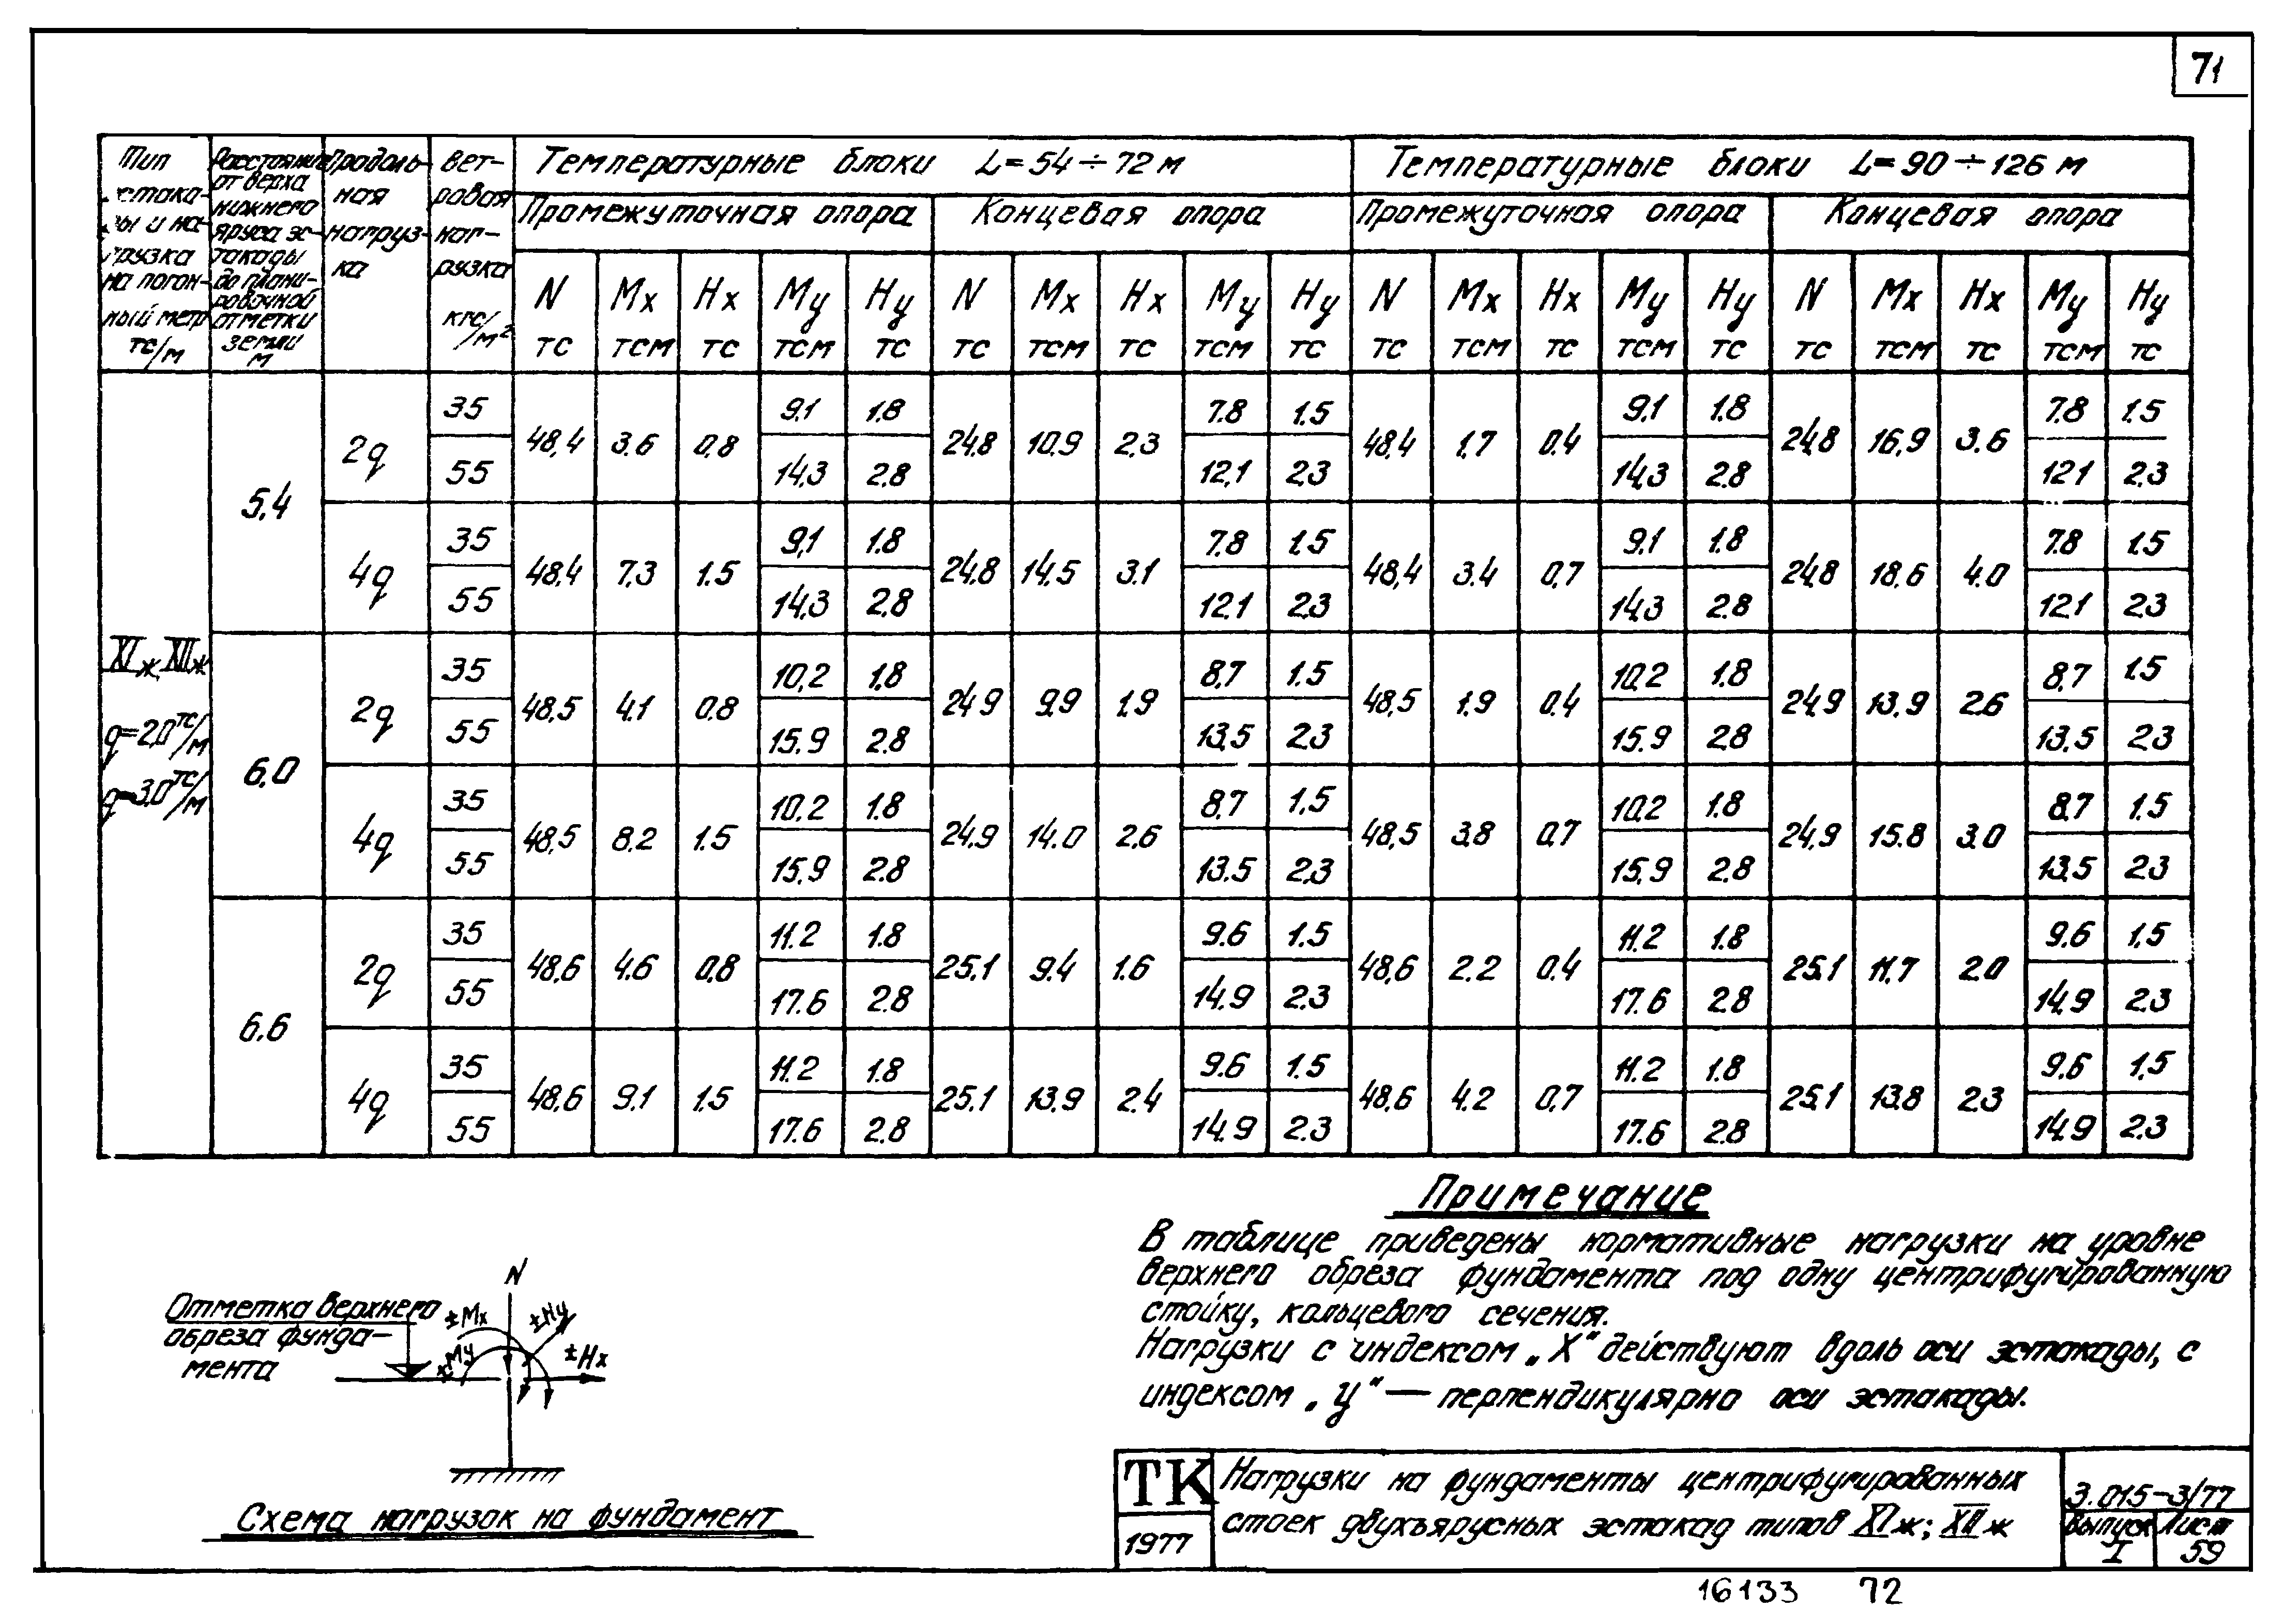 71
Тип
эстака-
ды и на-
грузка
на погон-
ный метр
тс/м
Расстояние
от верха
нижнего
яруса эс-
такады
до плани-
ровочной
отметки
земли
м
Продоль-
ная
нагруз-
ка
Вет-
ровая
наг-
рузка
кгс/м²
Температурные блоки L=54÷72 м
Температурные блоки L=90÷126 м
Промежуточная опора Концевая опора Промежуточная опора Концевая опора
N Mx Hx My Hy N Mx Hx My Hy N Mx Hx My Hy N Mx Hx My Hy
тс тсм тс тсм тс тс тсм тс тсм тс тс тсм тс тсм тс тс тсм тс тсм тс
XIж, XIIж
q=2,0 тс/м
q=3,0 тс/м
5,4
35 9,1 1.8 7.8 1.5 9.1 1.8 7.8 1.5
2q 48,4 3.6 0,8 24,8 10,9 2,3 48,4 1.7 0.4 24,8 16,9 3.6
55 14,3 2.8 12,1 2,3 14,3 2.8 12.1 2,3
35 9,1 1.8 7.8 1.5 9.1 1.8 7.8 1.5
4q 48,4 7,3 1.5 24,8 14,5 3.1 48,4 3.4 0,7 24,8 18,6 4.0
55 14,3 2,8 12.1 2,3 14,3 2.8 12.1 2.3
6,0
35 10,2 1.8 8,7 1.5 10,2 1.8 8,7 1.5
2q 48,5 4,1 0,8 24,9 9,9 1,9 48,5 1.9 0.4 24,9 13,9 2.6
55 15.9 2.8 13,5 2,3 15.9 2.8 13.5 2,3
35 10.2 1.8 8,7 1.5 10,2 1.8 8,7 1.5
4q 48,5 8,2 1.5 24,9 14.0 2,6 48,5 3,8 0,7 24,9 15.8 3.0
55 15,9 2.8 13.5 2,3 15,9 2.8 13,5 2.3
6,6
35 11.2 1.8 9.6 1.5 11.2 1.8 9.6 1.5
2q 48,6 4.6 0,8 25,1 9,4 1.6 48,6 2.2 0.4 25,1 11,7 2.0
55 17.6 2.8 14,9 2.3 17.6 2.8 14,9 2.3
35 11.2 1.8 9.6 1.5 11.2 1.8 9.6 1.5
4q 48,6 9.1 1.5 25.1 13,9 2.4 48,6 4,2 0,7 25,1 13,8 2.3
55 17.6 2.8 14,9 2.3 17.6 2.8 14,9 2.3
Примечание
В таблице приведены нормативные нагрузки на уровне
верхнего обреза фундамента под одну центрифугированную
стойку, кольцевого сечения.
Нагрузки с индексом „Х“ действуют вдоль оси эстакады, с
индексом „У“ — перпендикулярно оси эстакады.
Отметка верхнего
обреза фунда-
мента
N
±Mx
±Hy
±My
±Hx
Схема нагрузок на фундамент
ТК
1977
Нагрузки на фундаменты центрифугированных
стоек двухъярусных эстакад типов XIж; XIIж
3.015-3/77
Выпуск
I
Лист
59
16133 72